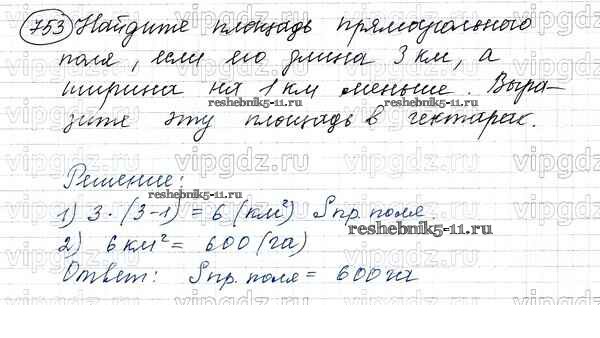 753) Найдите площадь прямоугольного
поля, если его длина 3 км, а
ширина на 1 км меньше. Выра-
reshebnik5-11.ru
зите эту площадь в гектарах.
vipgdz.ru
Решение:
reshebnik5-11.ru
1) 3·(3-1) = 6 (км²) Sпр. поля.
reshebnik5-11.ru
2) 6 км² = 600 (га)
Ответ: Sпр. поля = 600 га